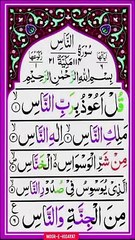 النَّاسِ
سُوْرَةُ
بِسْمِ اللهِ الرَّحْمٰنِ الرَّحِيْمِ
قُلْ اَعُوْذُ بِرَبِّ النَّاسِ
مَلِكِ النَّاسِ اِلٰهِ النَّاسِ
مِنْ شَرِّ الْوَسْوَاسِ الْخَنَّاسِ
الَّذِيْ يُوَسْوِسُ فِيْ صُدُوْرِ النَّاسِ
مِنَ الْجِنَّةِ وَالنَّاسِ